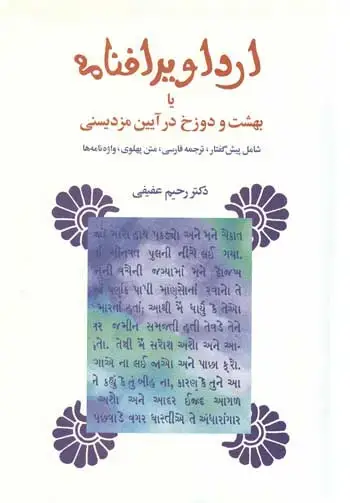 ارداویرافنامه
یا
بهشت و دوزخ در آیین مزدیسنی
شامل پیش گفتار، ترجمه فارسی، متن پهلوی، واژه‌نامه‌ها
دکتر رحیم عفیفی
મારો હાથ પકડ્યો અને મને ચેકાત
ચીનવત પુલની નીચે લઈ ગયા.
વચેની જગ્યામાં મને દોજખ
પાપી માણસોનાં રવાનો તે
હતાં; આથી મેં ધાર્યું કે તેઓ
જમીન સમજતી હતી તેવડે તેને
તેથી મેં સરોશ અશો અને આ-
ગાએ ના લઈ જાઓ અને પાછા ફરો.
ને કહ્યું કે તું બીહ ના, કારણ કે તુંને આ
અશો અને આદર ઈજદ આગળ
પછવાડે વગર ધાસ્તીએ તે અંધારાંગાર